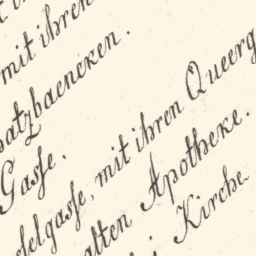 mit ihren
satzbaencken.
Gasse.
selgasse, mit ihren Queerg
alten Apotheke.
Kirche